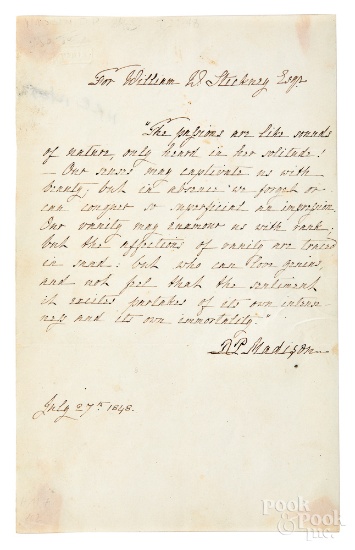 For William W Stickney Esqr.
"The passions are like sounds
of nature, only heard in her solitude!
– Our senses may captivate us with
beauty; but in absence we forget or
can conquer so superficial an impression.
Our vanity may enamour us with rank;
but the affections of vanity are traced
in sand: but who can love genius,
and not feel that the sentiment
it excites partakes of its own intense
ness and its own immortality."
D. P. Madison
July 27th 1848.
POOK
& POOK
inc.